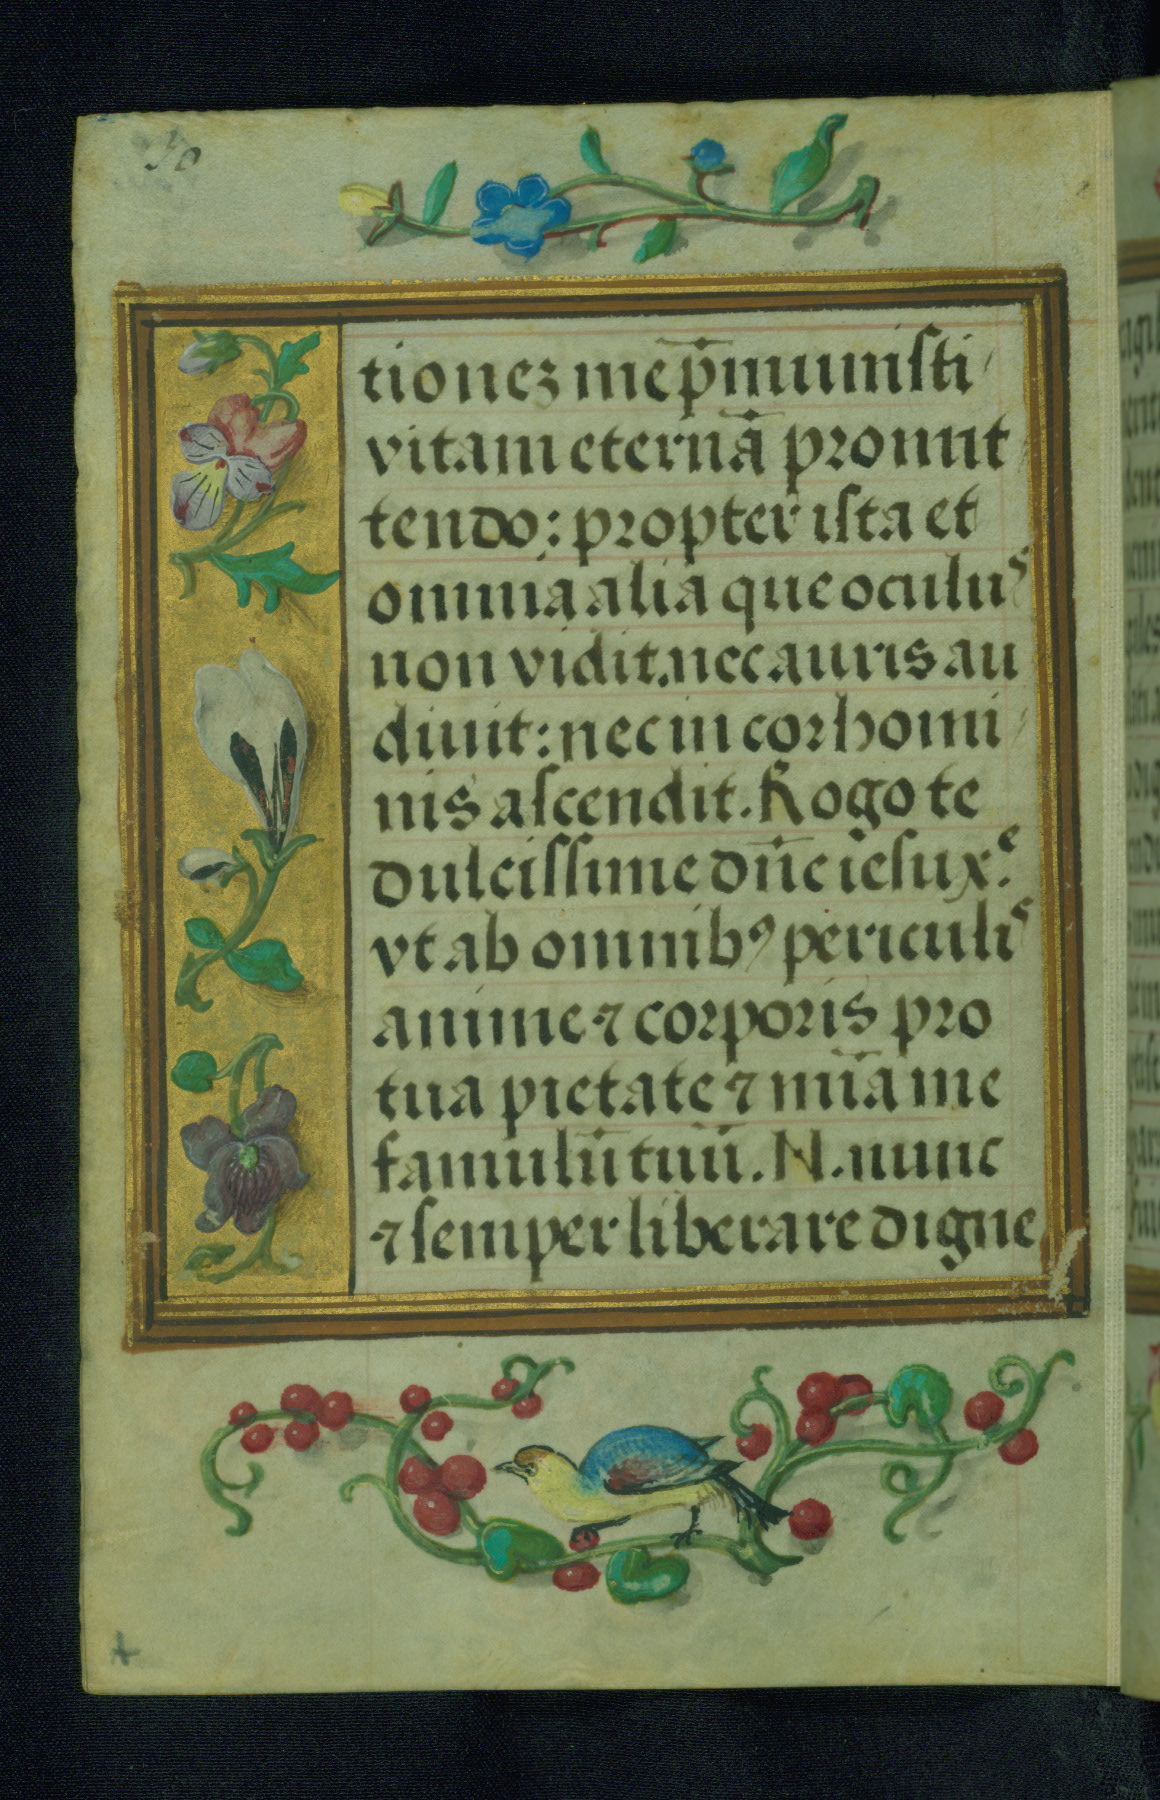 40
tionez me p̄muniſti
vitam eternā promit
tendo: propter iſta et
omnia alia que oculuˢ
non vidit. nec auris au
diuit: nec in cor homi
nis aſcendit. Rogo te
dulciſſime dn̄e ieſu x.ᵉ
vt ab omnibꝰ periculiˢ
anime ⁊ corporis pro
tua pietate ⁊ mīa me
famulū tuū. N. nunc
⁊ ſemper liberare digne